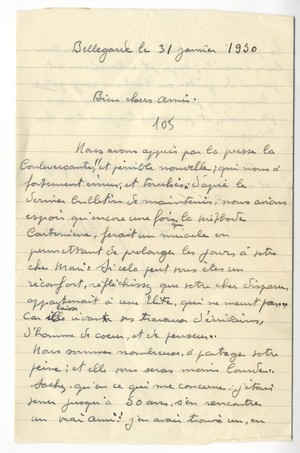 Bellegarde le 31 janvier 1950
Bien chers amis.
105
Nous avons appris par la presse la
bouleversante, et pénible nouvelle; qui nous a
fortement émus, et touchés. d'après le
dernier bulletin de maintenir, nous avions
espoir qu'encore une fois, que la méthode
Cartonière, ferait un miracle en
permettant de prolonger les jours à votre
cher Mari. Si cela peut vous etre un
réconfort, réfléchissez, que votre cher disparu,
appartenait à une Elite, qui ne meurt pas...
Car elle laisse vivante ses travaux d'écrivains,
d'homme de coeur, et de penseur...
Nous sommes nombreux, à partager votre
peine; et elle vous sera moins lourde.
Sachez, qu'en ce qui me concerne. j'étais
venu jusqu'à 50 ans, s'en rencontrer
un vrai Ami!! j'en avais trouvé un, en